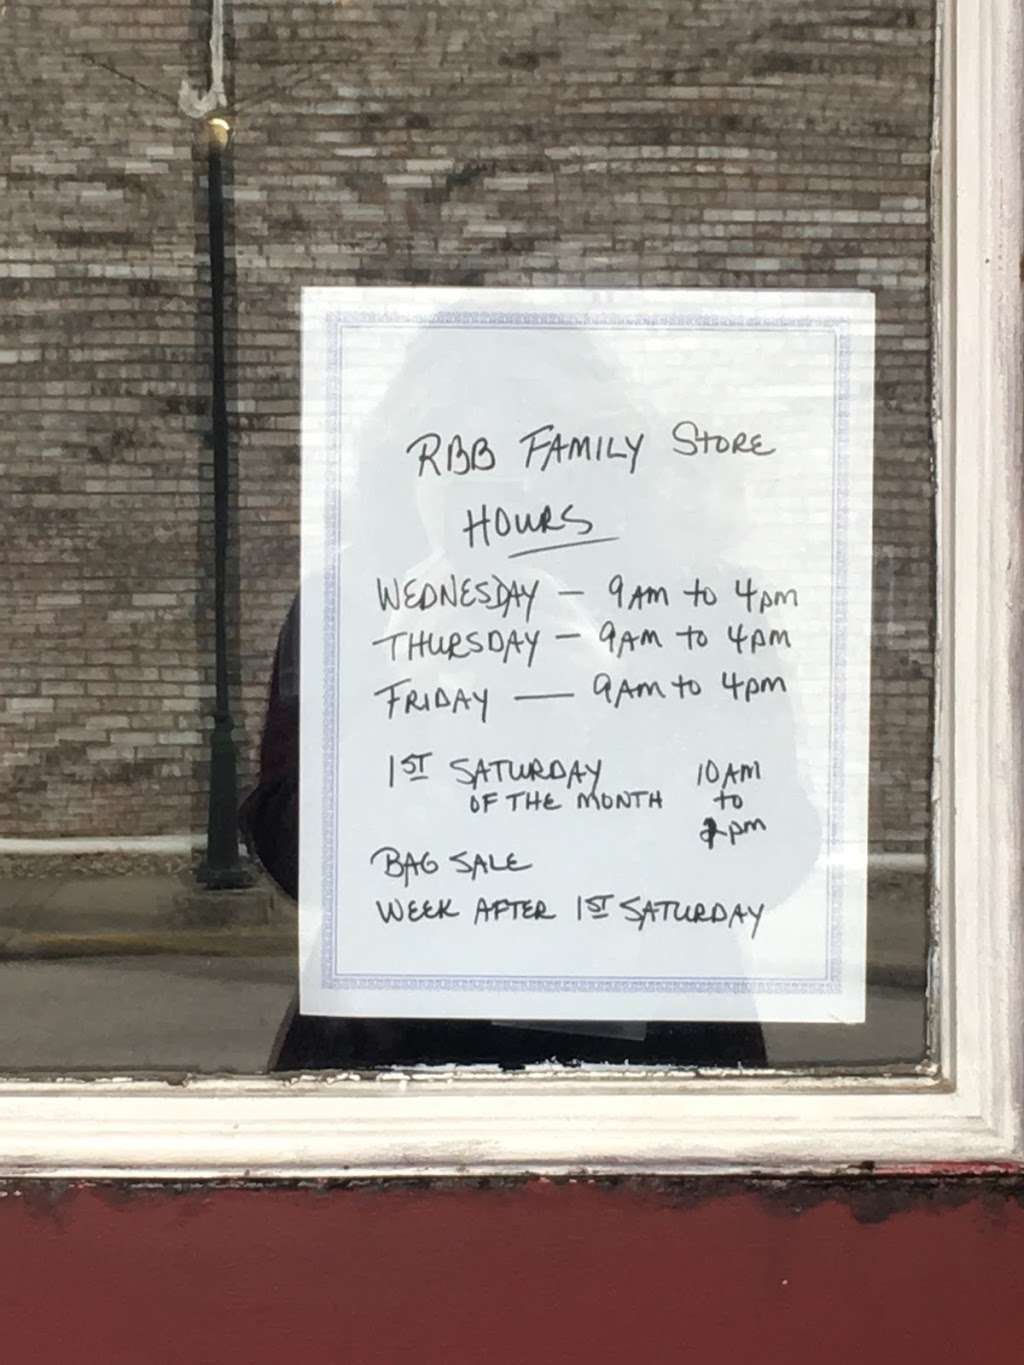 RBB FAMILY STORE
HOURS
WEDNESDAY — 9AM to 4pm
THURSDAY — 9AM to 4pm
FRIDAY — 9AM to 4pm
1ST SATURDAY 10AM
OF THE MONTH to
pm
BAG SALE
WEEK AFTER 1ST SATURDAY